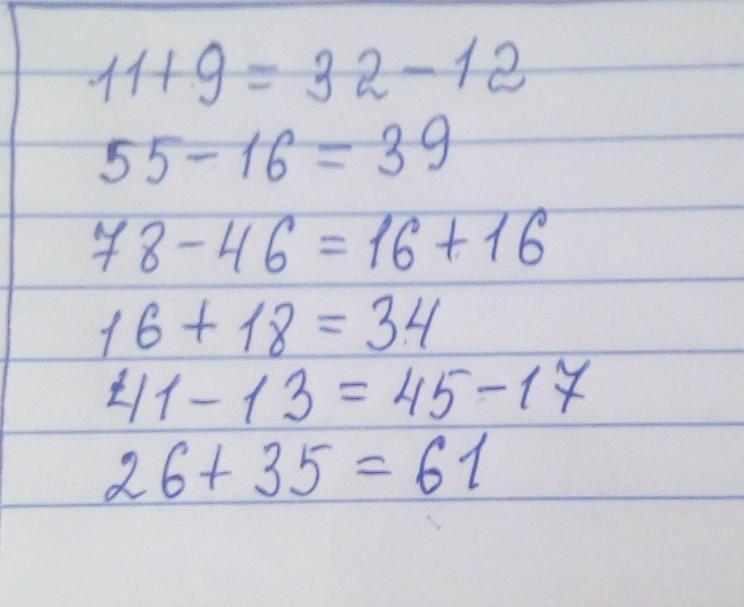 11+9=32-12
55-16=39
78-46=16+16
16+18=34
41-13=45-17
26+35=61